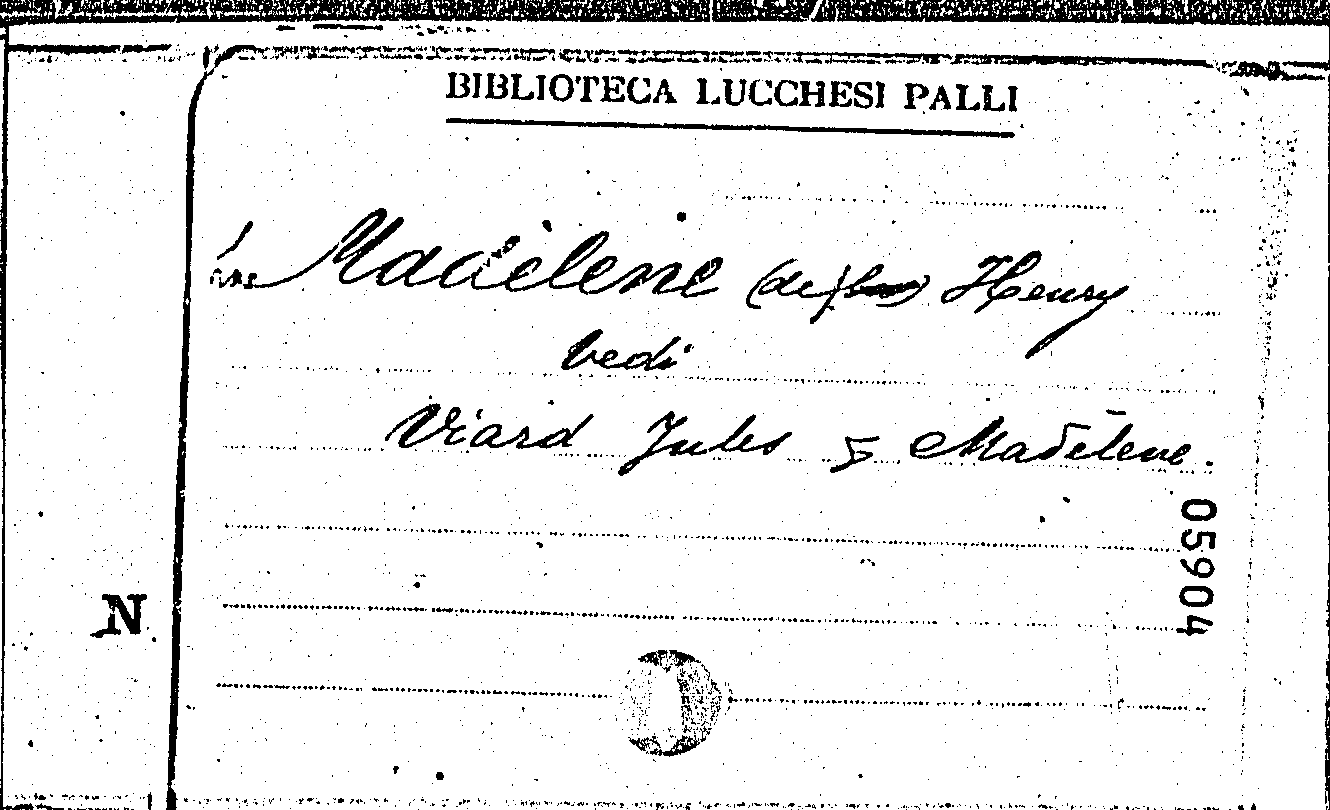 BIBLIOTECA LUCCHESI PALLI
Madèlene (de) Henry
vedi
Viard Jules & Madèlene.
05904
N